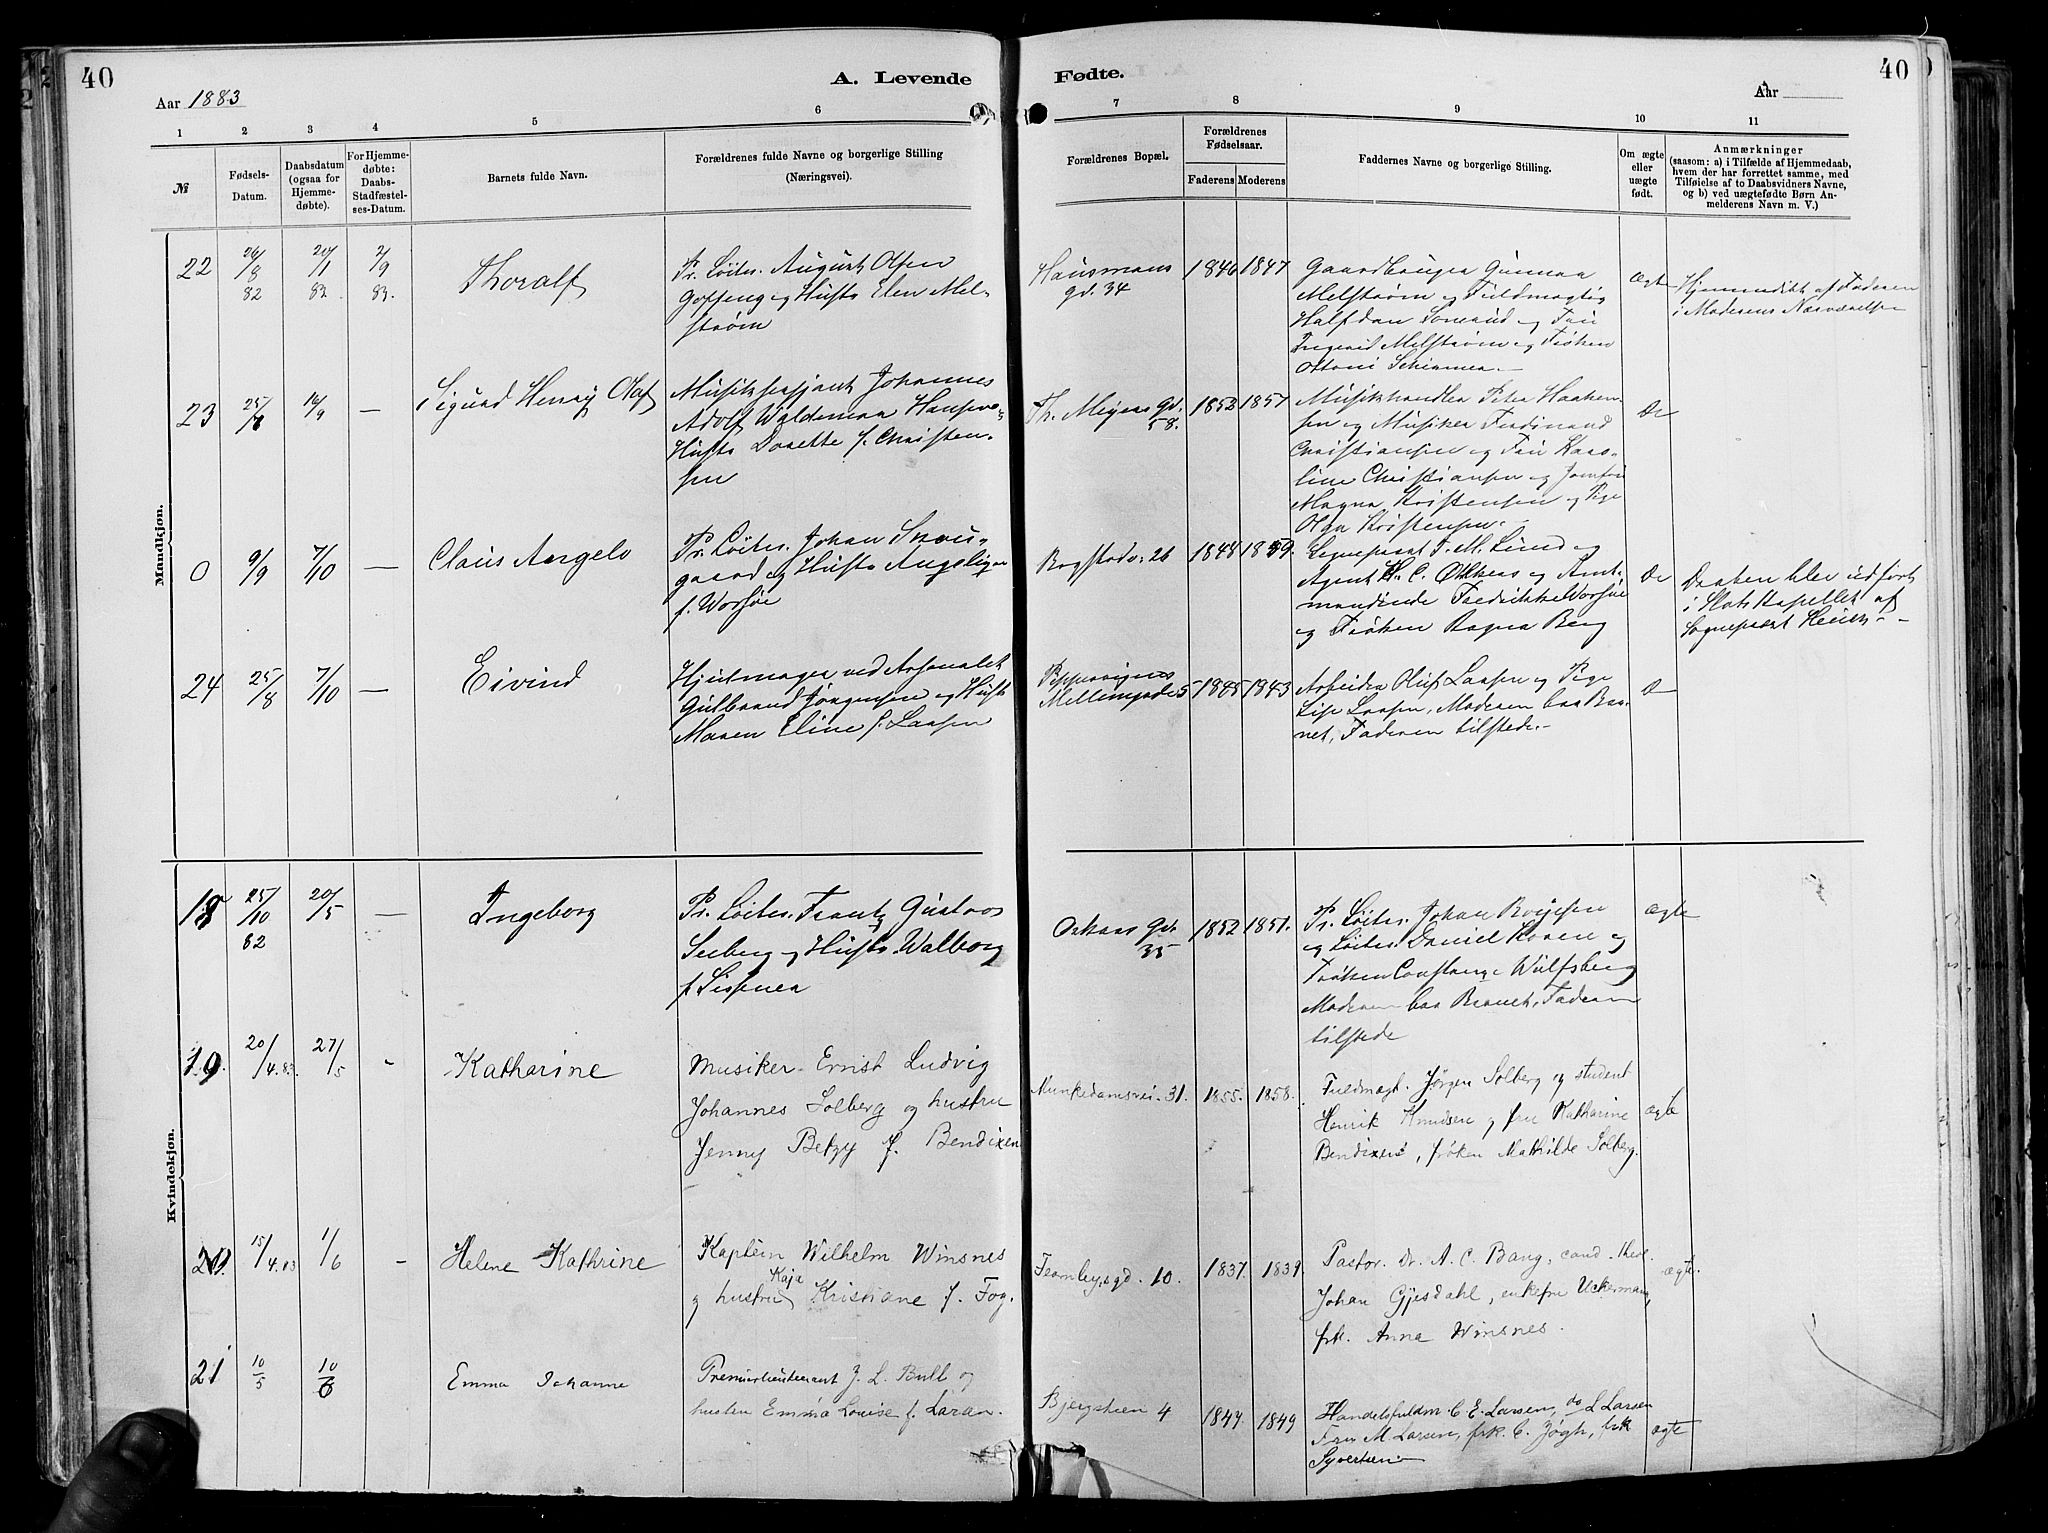 40
A. Levende
Fødte.
40
Aar 1883
Aar
1 2 3 4 5 6 7 8 9 10 11
№
Fødsels-
Datum.
Daabsdatum
(ogsaa for
Hjemme-
døbte).
For Hjemme-
døbte:
Daabs-
Stadfæstel-
ses-Datum.
Barnets fulde Navn.
Forældrenes fulde Navne og borgerlige Stilling
(Næringsvei).
Forældrenes Bopæl.
Forældrenes
Fødselsaar.
Faderens Moderens
Faddernes Navne og borgerlige Stilling.
Om ægte
eller
uægte
født.
Anmærkninger
(saasom: a) i Tilfælde af Hjemmedaab,
hvem der har forrettet samme, med
Tilføielse af to Daabsvidners Navne,
og b) ved uægtefødte Børn An-
melderens Navn m. V.)
Mandkjøn.
22
26/8 82
20/1 83.
2/9 83.
Thoralf
Pr. Löitn. August Olsen
og Hustr Elen Mel-
strøm
Hausmans
gd. 34
1846 1847
Gaardbruger Gunnar
Melstrøm og Fuldmægtig
Halfdan og Fru
Ingerid Melstrøm og Frøken
Schirmer.
Ægte
Hjemmedøbt af Faderen
i Moderens Nærværelse
23
16/9
—
Sigurd Henry Olaf
Musiksersjant Johannes
Adolf Waldemar Hansen o
Hustr Dorette f. Christen-
sen
Th. Meyers Gd.
58.
1853 1857
Musikhandler Peter Haaken-
sen og Musiker Ferdinand
Christiansen og Fru Karo-
line Christiansen og Jomfru
Magna Kristensen og Pige
Olga Kristensen.
Do
0
9/9
7/10
—
Claus Angelo
Pr. Löitn. Johan Snou-
gaard og Hustr Angeligue
f. Worsøe
Bogstadv. 26
1848 1859.
Sogneprest F. M. Lund og
Agent H. C. og Amt-
mandinde Fredrikke Worsøe
og Frøken Ragna Berg
Do
Daaben blev udført
i Slots Kapellet af
Sogneprest Heuch
24
25/8
7/10
—
Eivind
Hjulmager ved Arsenalet
Gulbrand Jörgensen og Hustr
Maren Eline f. Larsen
Pippervigens
Mellemgade 5
1845 1843
Arbeider Oluf Larsen og Pige
Lise Larsen, Moderen bar Bar-
net, Faderen tilstede.
D
Kvindekjøn.
18
25/10 82
20/5
—
Ingeborg
Pr. Löitn. Frantz Gustav
Seeberg og Hustr Walborg
f.
Oskars Gd.
35
1852 1851.
Pr. Löitn. Johan Boyesen
og Löitn. Daniel Koren og
Frøken Constance Wulfsberg
Moderen bar Barnet, Faderen
tilstede
ægte
19.
20/4.83.
27/5
-
Katharine
Musiker Ernst Ludvig
Johannes Solberg og hustru
Jenny Betzy f. Bendixen
Munkedamsvei. 31.
1855. 1858.
Fuldmægt. Jørgen Solberg og student
Henrik Knudsen og fru Katharine
Bendixen, frøken Mathilde Solberg.
ægte
20.
15/4.83
1/6
-
Helene Kathrine
Kaptein Wilhelm Winsnes
og hustru Kaja Kristiane f. Fog.
Fearnleysgd. 10.
1837. 1839.
Pastor. Dr. A. C. Bang, cand. theol.
Johan Gjesdahl, enkefru Uckermann,
frk. Anna Winsnes.
ægte.
21
10/5
10/6
Emma Johanne
Premierlieutenant J. L. Bull og
hustru Emma Louise f. Larsen.
Bjergstien 4
1847. 1849
Handelsfuldm. C. E. Larsen, do L Larsen
Fru M Larsen, frk. C. frk
Syvertsen
ægte